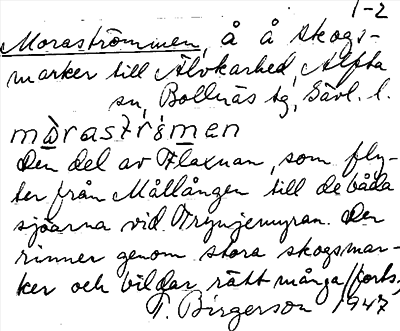 1-2
Moraströmmen, å å skogs-
marker till Älvkarhed, Alfta
sn, Bollnäs tg, Gävl. l.
Den del av Flaxnan, som fly-
ter från Mållången till de båda
sjöarna vid Trynjemyran. Den
rinner genom stora skogsmar-
ker och bildar rätt många (forts.)
T. Birgerson 1947